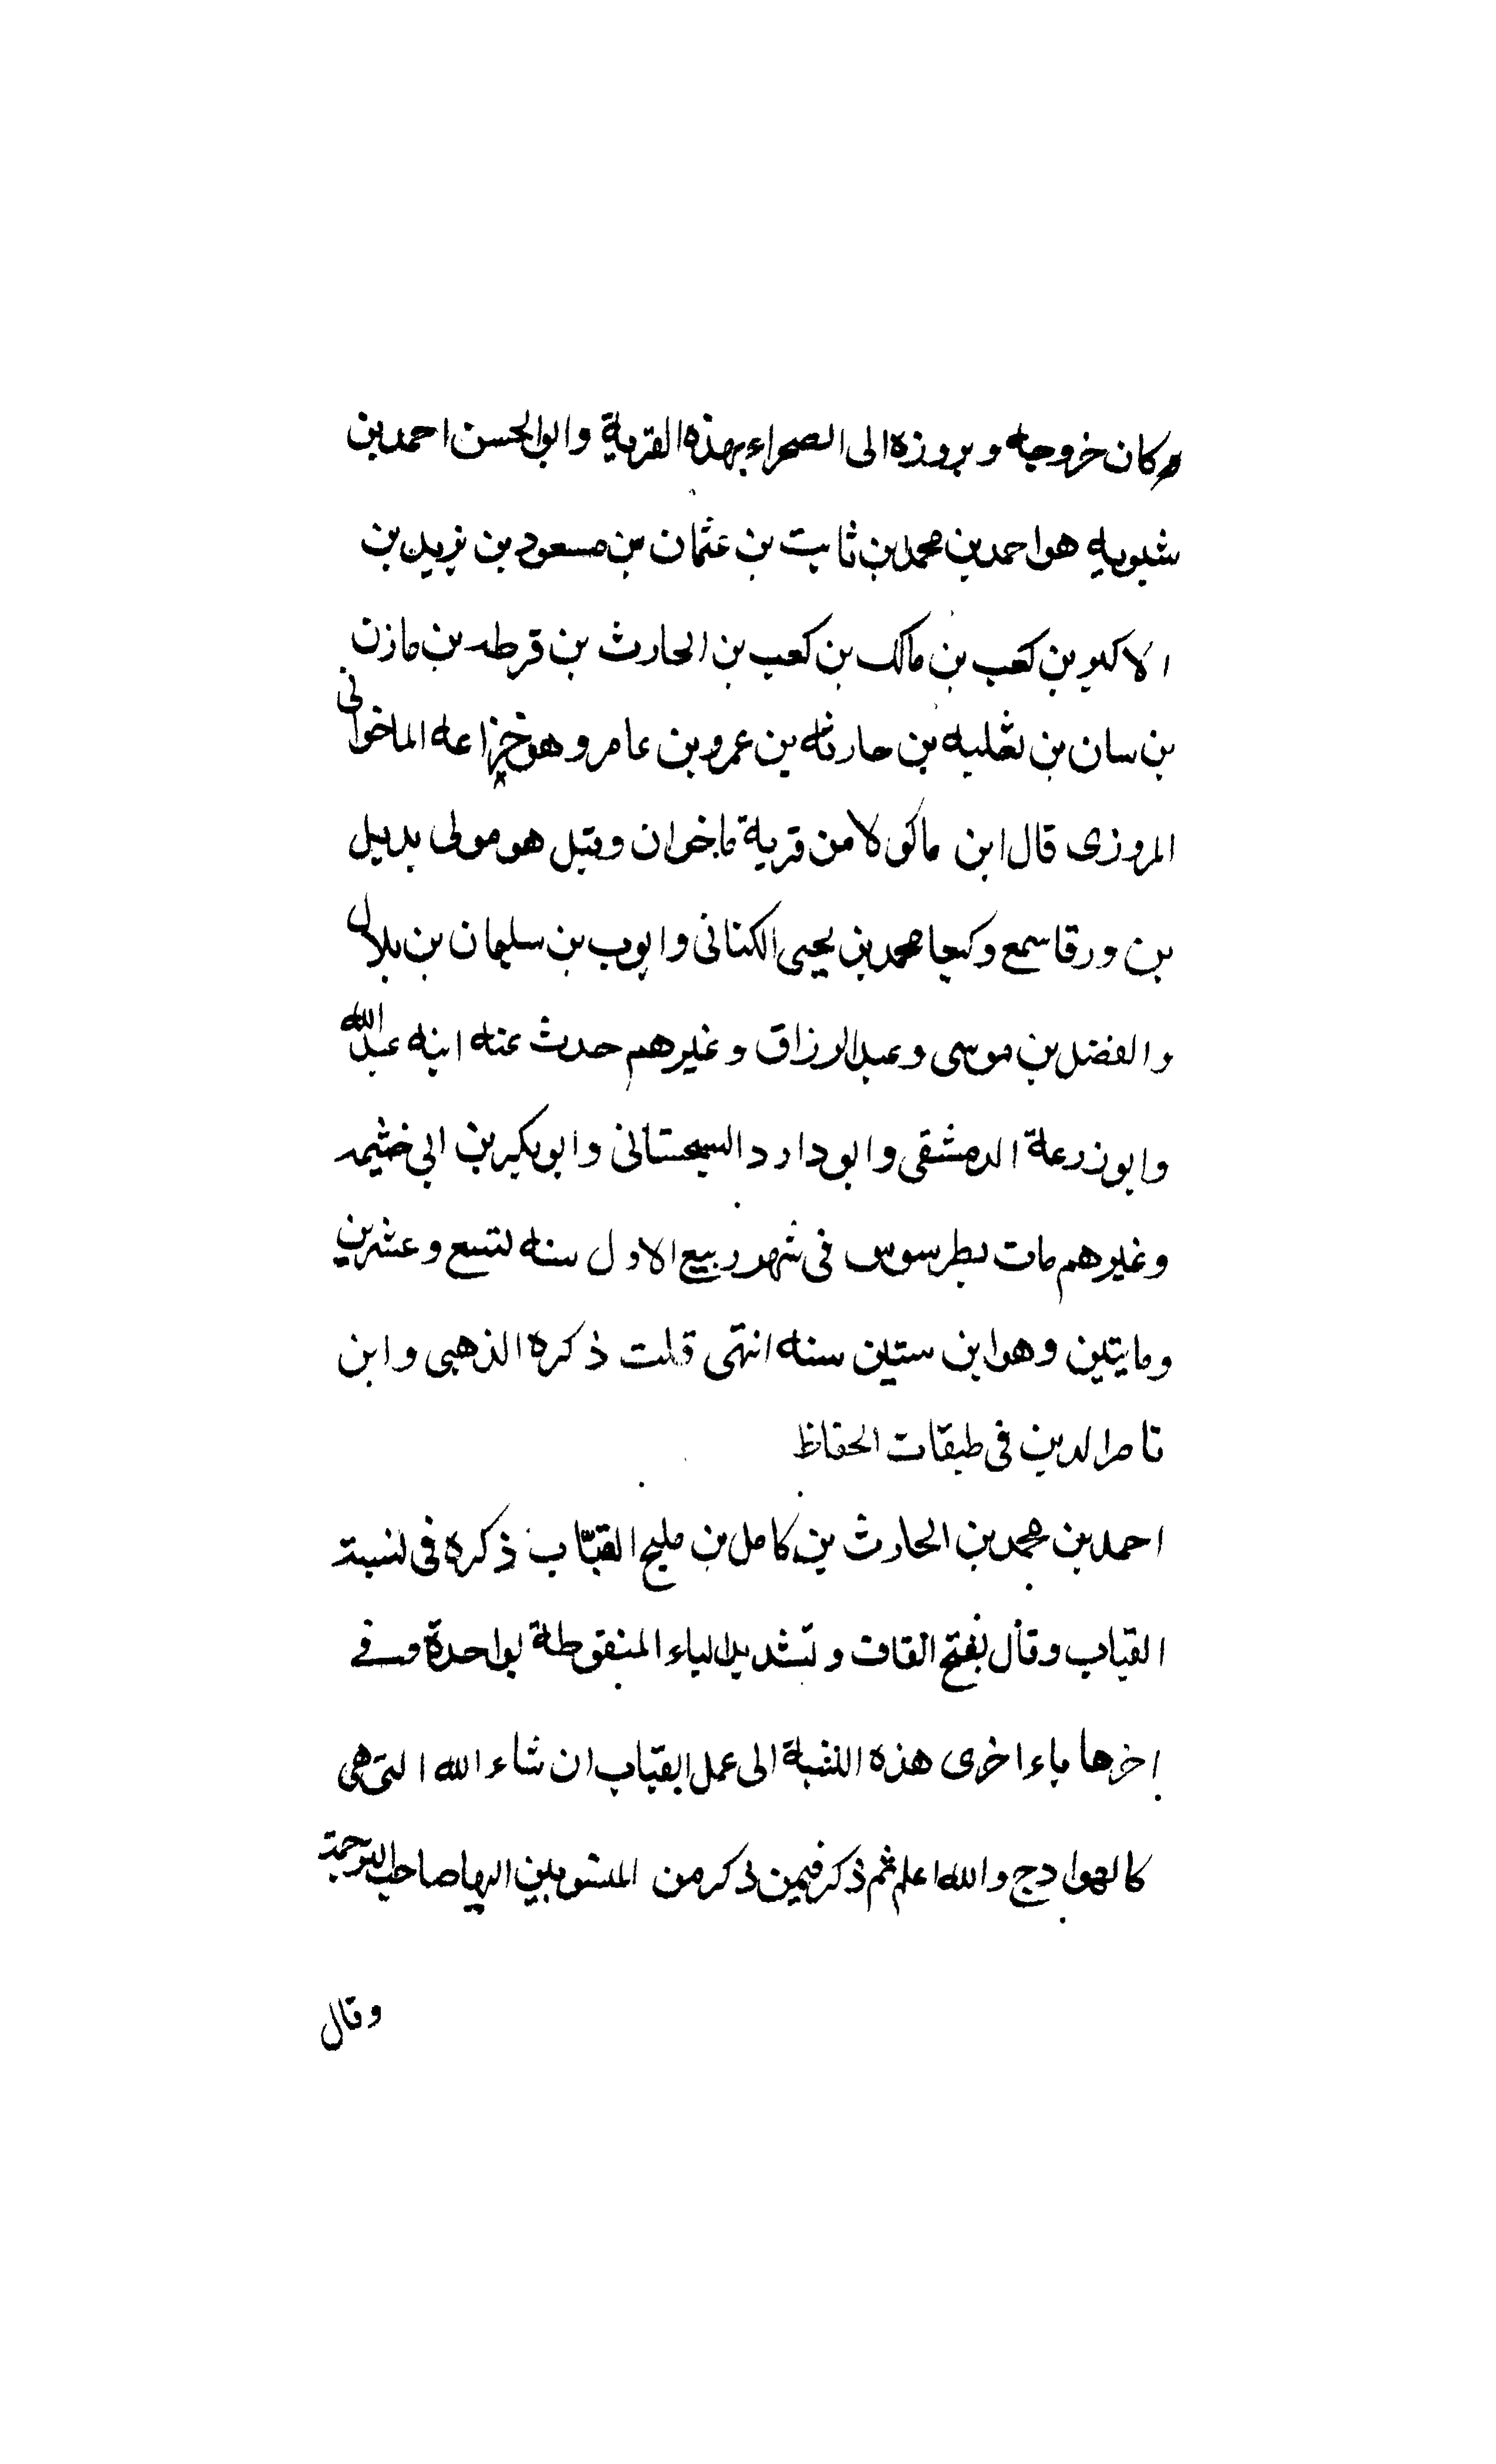 وكان خروجه وبروزه الى الصحراء بهذه القرية وابو الحسن احمد بن
شبويه هو احمد بن محمد بن ثابت بن عثمان بن مسعود بن يزيد بن
الاكبر بن كعب بن مالك بن كعب بن الحارث بن قرطه بن مازن
بن سان بن ثعلبه بن حارثه بن عمرو بن عامر وهو خزاعه الماخوانى
المروزى قال ابن ماكولا من قرية ماخوان وقيل هو مولى بديل
بن ورقا سمع وكيعا محمد بن يحيى الكنانى وايوب بن سليمان بن بلال
والفضل بن موسى وعبد الرزاق وغيرهم حدث عنه ابنه عبد الله
وابو زرعة الدمشقى وابو دارد السجستانى وابو بكير بن ابى خثيمه
وغيرهم مات بطرسوس فى شهر ربيع الاول سنه تسع وعشرين
ومايتين وهو ابن ستين سنه انتهى قلت ذكره الذهبى وابن
ناصر الدين فى طبقات الحفاظ
احمد بن محمد بن الحارث بن كامل بن مليح القبّاب ذكره فى نسبة
القباب وقال بفتح القاف وتشديد الباء المنقوطة بواحدة وفى
اخرها باء اخرى هذه النسبة الى عمل القباب ان شاء الله التى هى
كالهوادج والله اعلم ثم ذكر فيمن ذكر من المنسوبين اليها صاحب الترجمة
وقال